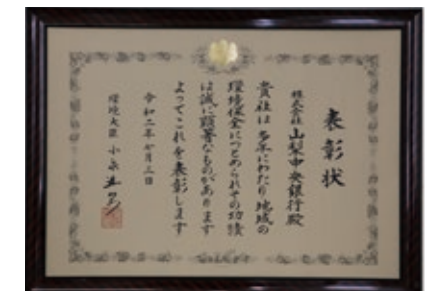 表彰状
株式会社 山梨中央銀行殿
貴社は多年にわたり地域の
環境保全につとめられその功績
は誠に顕著なものがあります
よってこれを表彰します
令和二年六月三日
環境大臣 小泉進次郎